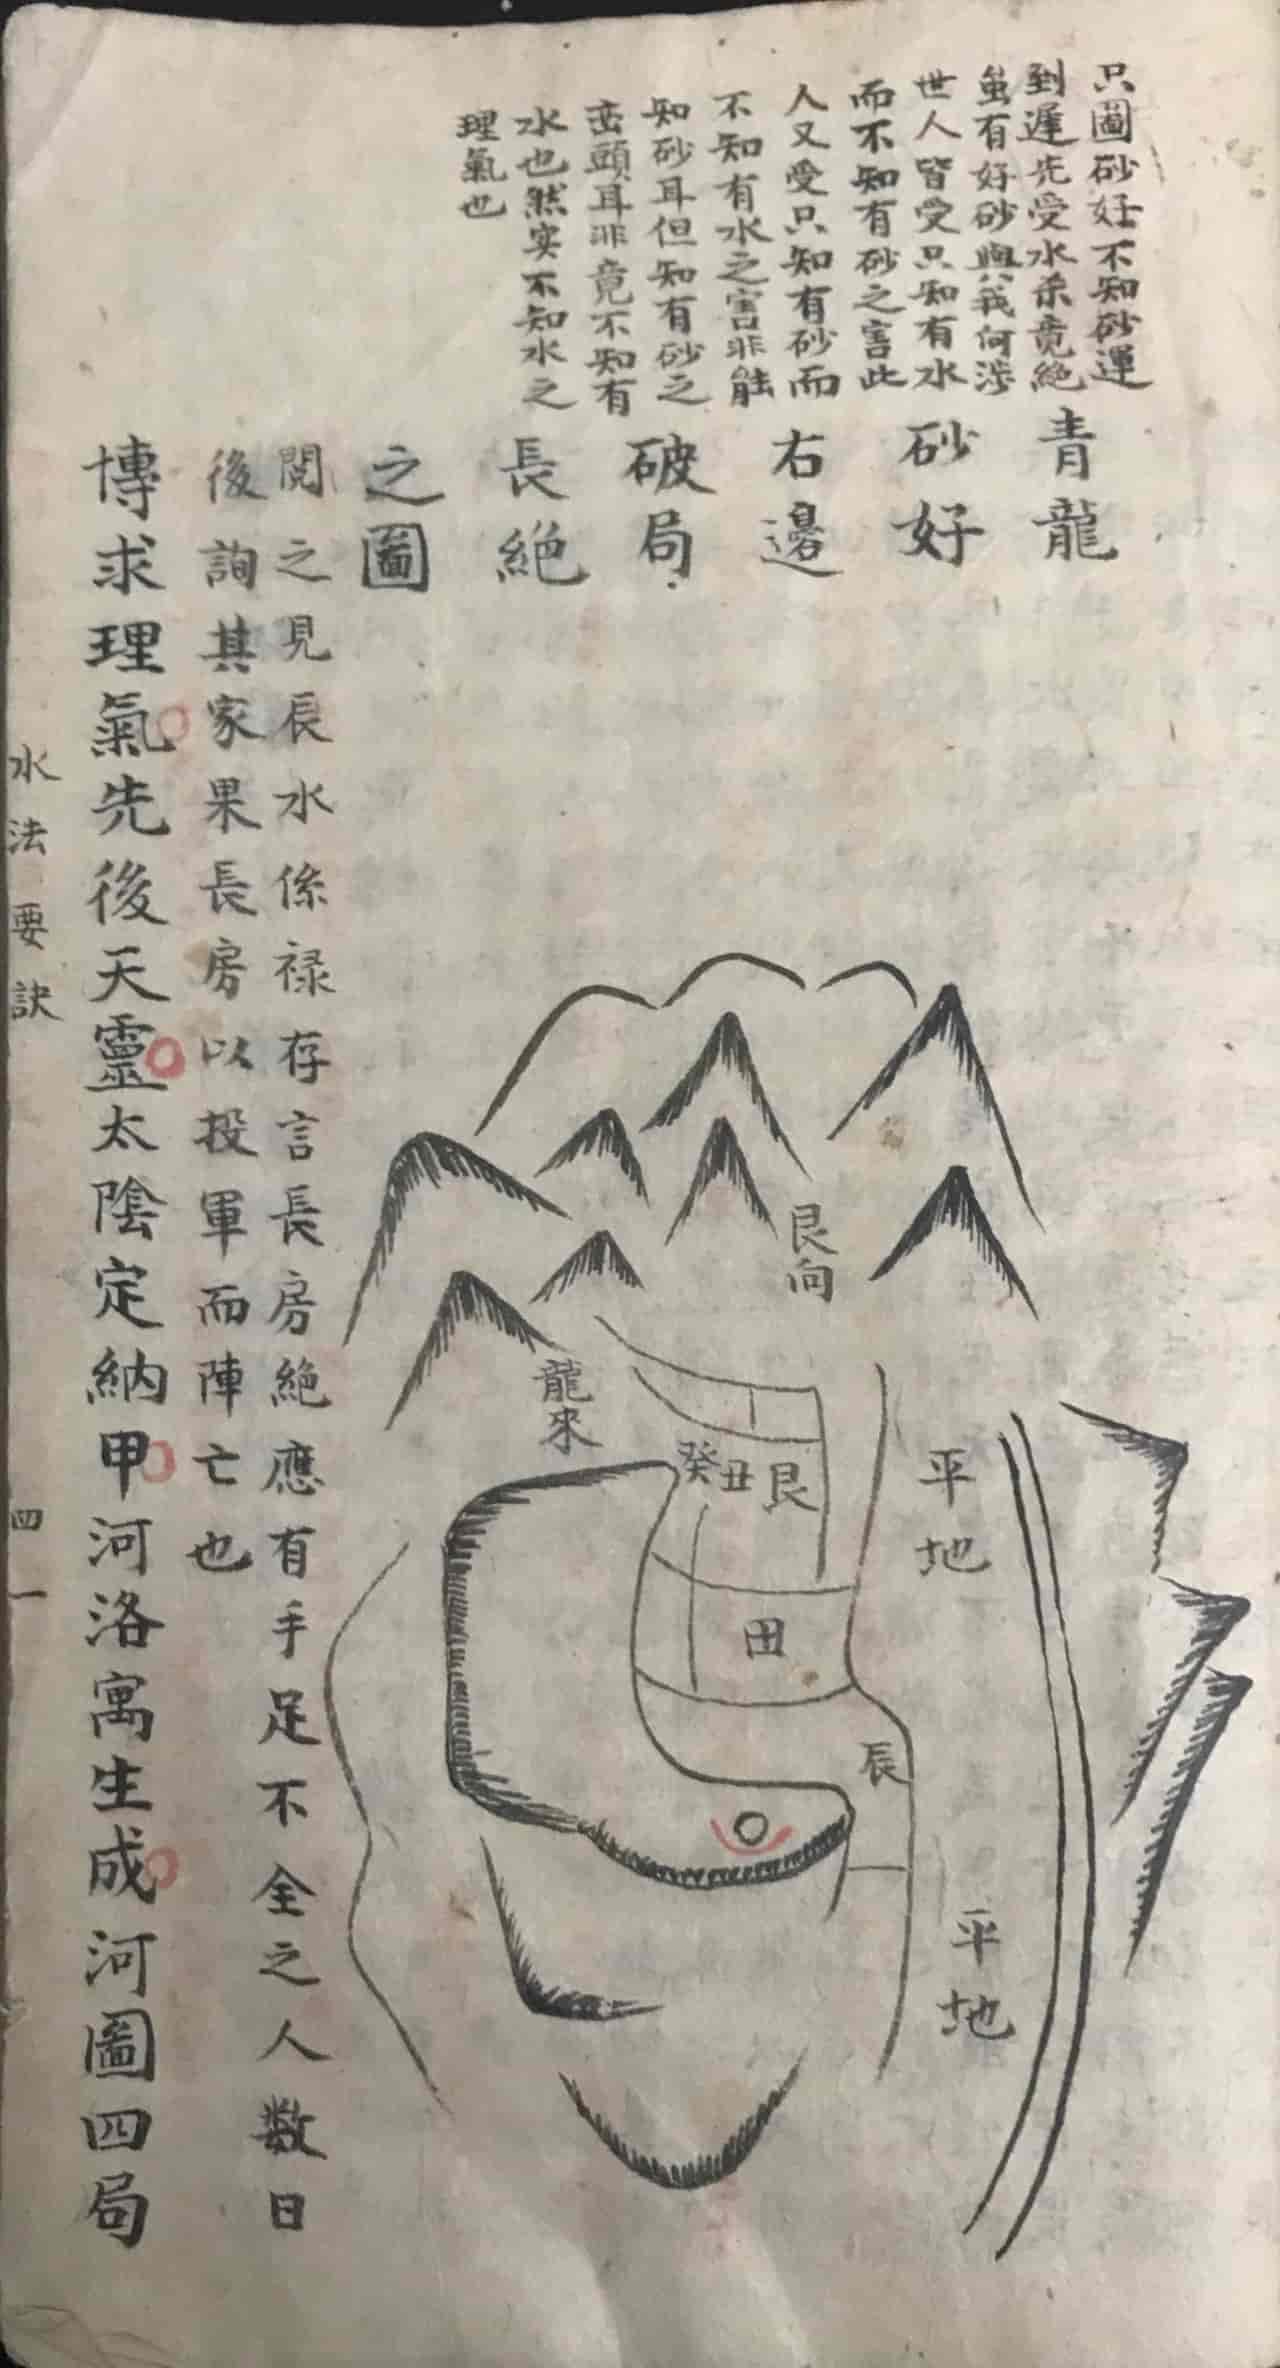 只圖砂好不知砂運
到遲先受水杀竟絕
虽有好砂與我何涉
世人皆受只知有水
而不知有砂之害此
人又受只知有砂而
不知有水之害非能
知砂耳但知有砂之
峦頭耳非竟不知有
水也然实不知水之
理氣也
青龍
砂好
右邊
破局
長絕
之圖
艮向
龍來
癸丑艮
平地
田
辰
平地
閱之見辰水係禄存言長房絕應有手足不全之人数日
後詢其家果長房以投軍而陣亡也
博求理氣先後天靈太陰定納甲河洛寓生成河圖四局
水法要訣
四一